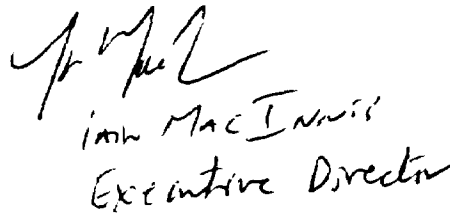 Ian MacInnis
Executive Director